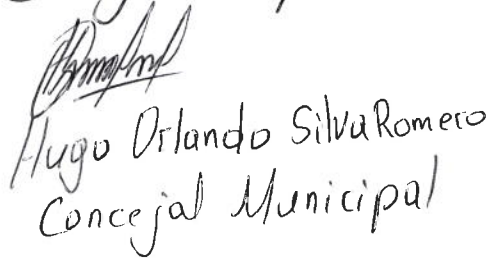 Hugo Orlando Silva Romero
Concejal Municipal